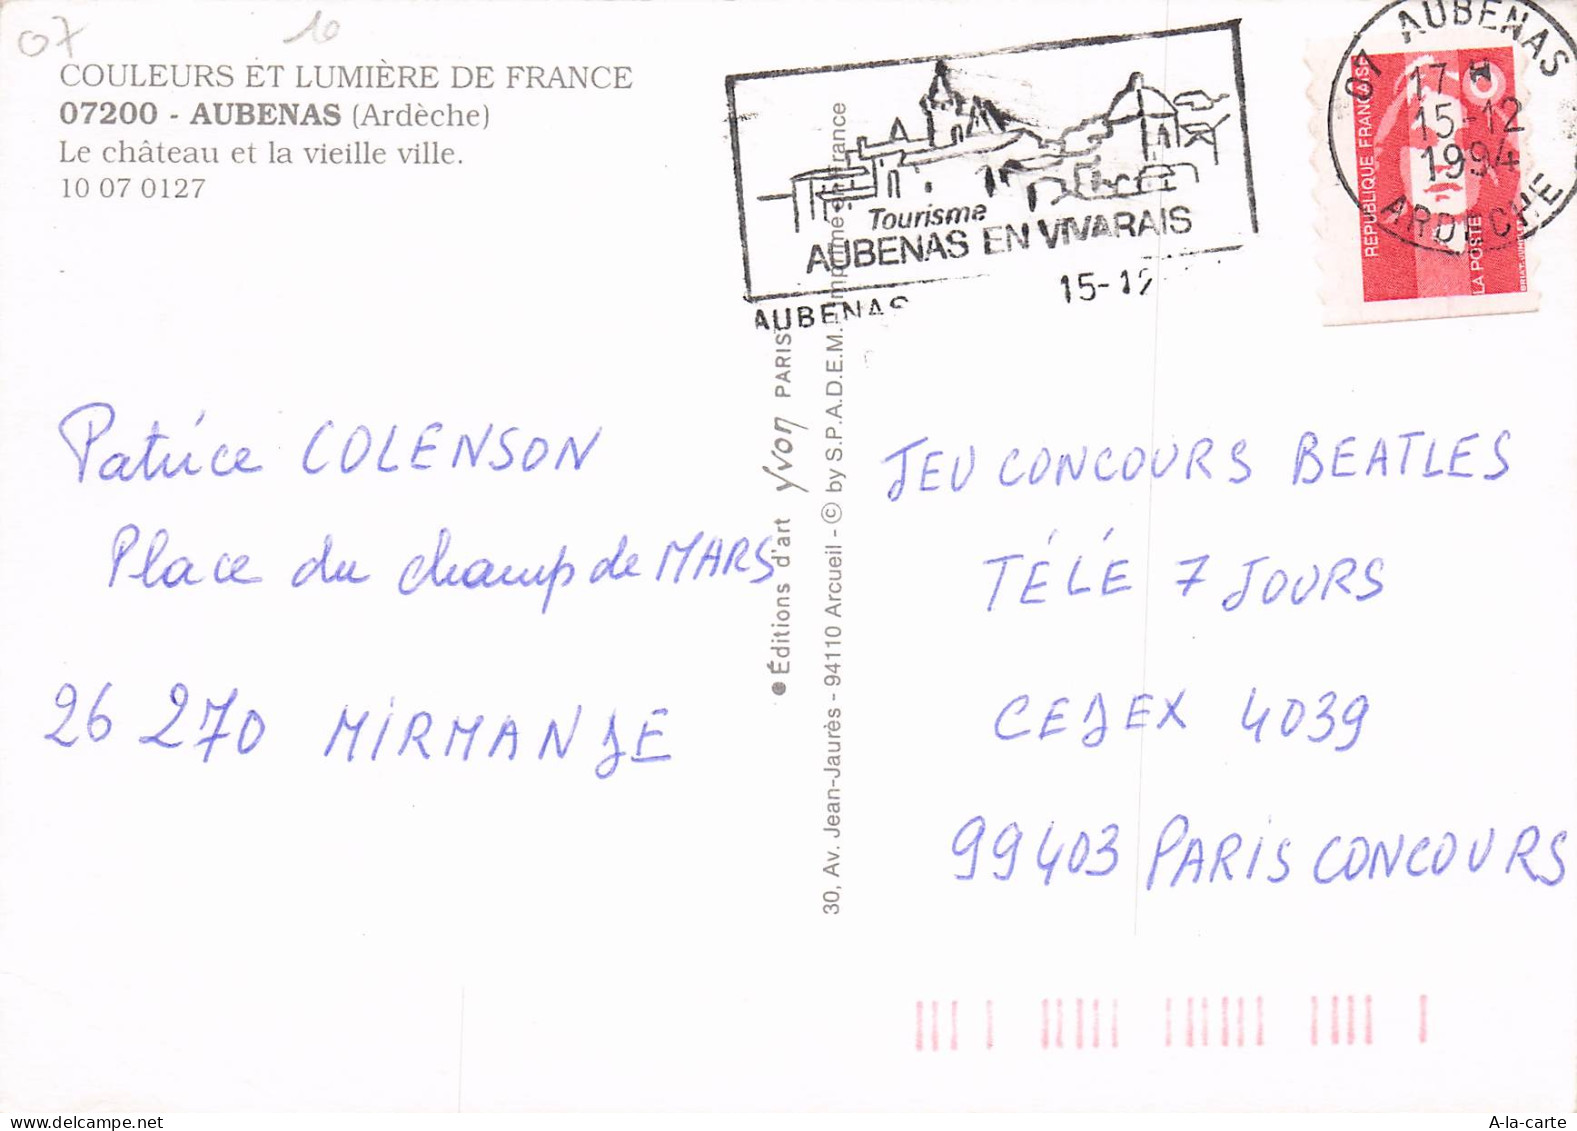 07
10
COULEURS ET LUMIÈRE DE FRANCE
07200 - AUBENAS (Ardèche)
Le château et la vieille ville.
10 07 0127
Tourisme
AUBENAS EN VIVARAIS
AUBENAS 15-12
07 AUBENAS
17 H
15-12
1994
ARDECHE
REPUBLIQUE FRANÇAISE
LA POSTE
Patrice COLENSON
Place du champ de MARS
26 270 MIRMANDE
● Éditions d'art yvon PARIS
30, Av. Jean-Jaurès - 94110 Arcueil - © by S.P.A.D.E.M. Imprimé en France
JEU CONCOURS BEATLES
TÉLÉ 7 JOURS
CEDEX 4039
99403 PARIS CONCOURS
A-la-carte